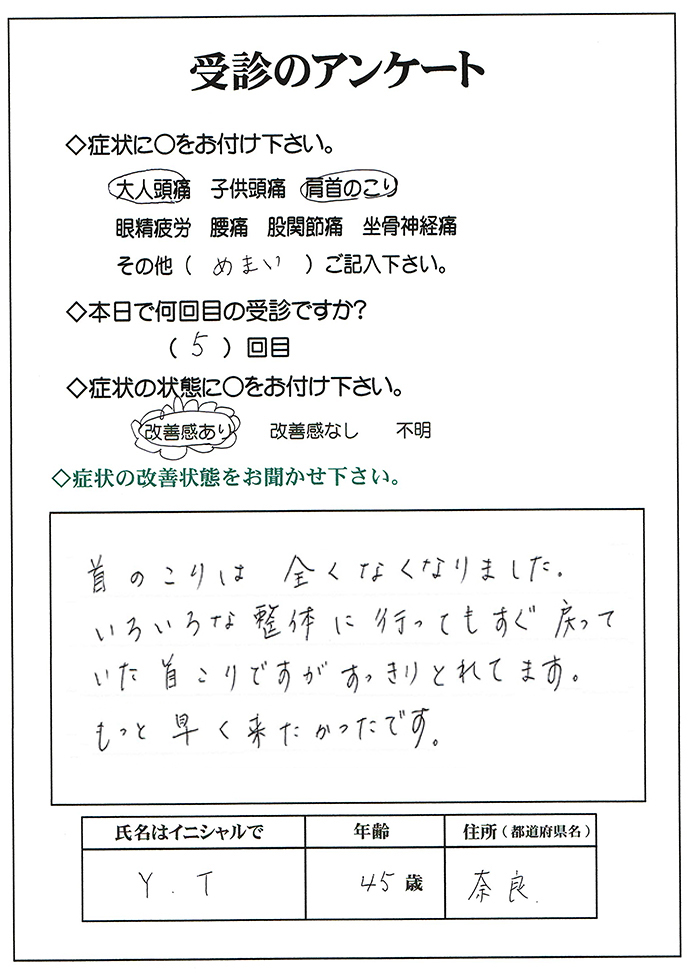 受診のアンケート
◇症状に〇をお付け下さい。
大人頭痛 子供頭痛 肩首のこり
眼精疲労 腰痛 股関節痛 坐骨神経痛
その他（ めまい ）ご記入下さい。
◇本日で何回目の受診ですか?
（ 5 ）回目
◇症状の状態に〇をお付け下さい。
改善感あり 改善感なし 不明
◇症状の改善状態をお聞かせ下さい。
首のこりは 全くなくなりました。
いろいろな整体に行ってもすぐ戻って
いた首こりですがすっきりとれてます。
もっと早く来たかったです。
氏名はイニシャルで 年齢 住所（都道府県名）
Y.T 45歳 奈良.